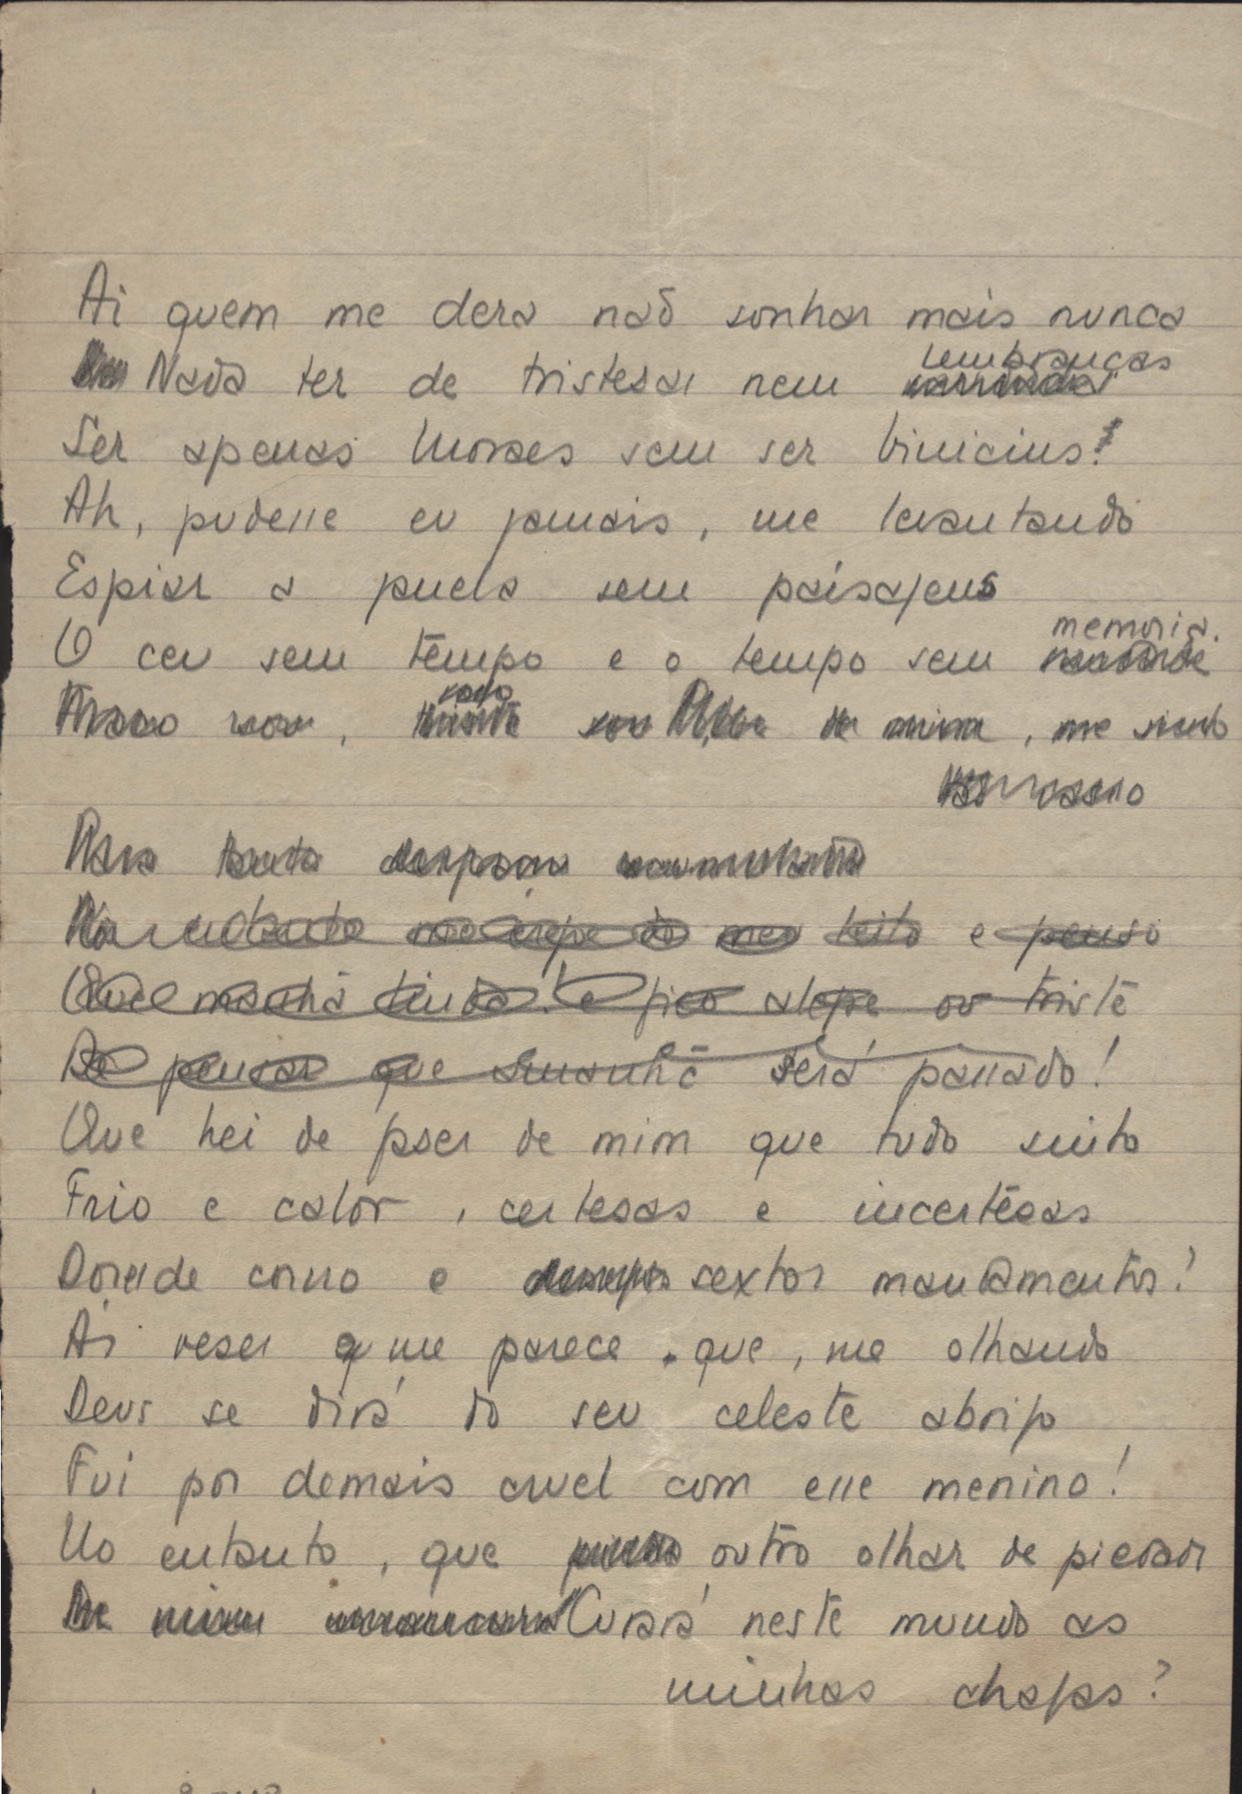 Ai quem me dera não sonhar mais nunca
lembranças
Nada ter de tristesas nem
Ser apenas Moraes sem ser Vinicius!
Ah, pudesse eu jamais, me levantando
Espiar a janela sem paisagens
memoria.
O ceu sem tempo e o tempo sem
sou, me sinto
Nao obstante me ergo do meu leito e penso
Que manhã linda! e fico alegre ou triste
De pensar que amanhã será passado!
Que hei de fazer de mim que tudo sinto
Frio e calor, certesas e incertêsas
Donde como e sextos mandamentos!
Ai vezes q me parece que, me olhando
Deus se dirá do seu celeste abrigo
Fui por demais cruel com esse menino!
No entanto, que outro olhar de piedade
Curará neste mundo as
minhas chagas?